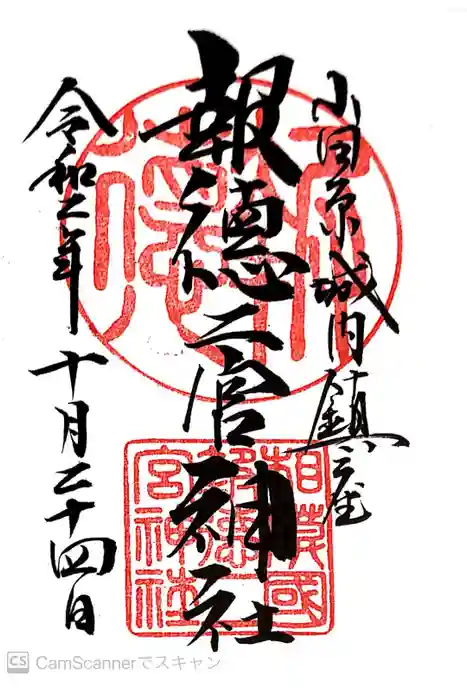 小田原城内鎮座
報徳二宮神社
令和二年十月二十四日
報徳
相模國
報徳二
宮神社
CS CamScannerでスキャン